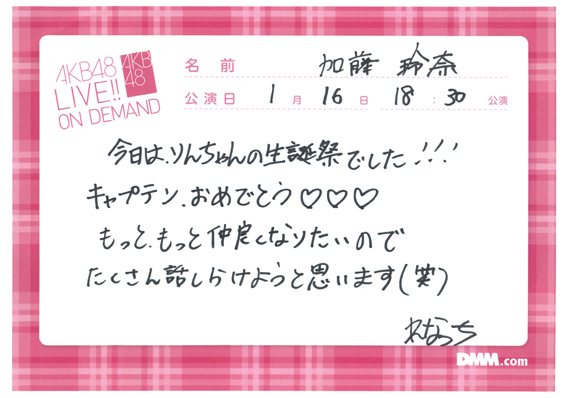 AKB48
LIVE!!
ON DEMAND
AKB
48
名前 加藤 玲奈
公演日 1月 16日 18:30 公演
今日は、りんちゃんの生誕祭でした!!!
キャプテン、おめでとう♡♡♡
もっと、もっと仲良くなりたいので
たくさん話しらけようと思います(笑)
れなっち
DMM.com